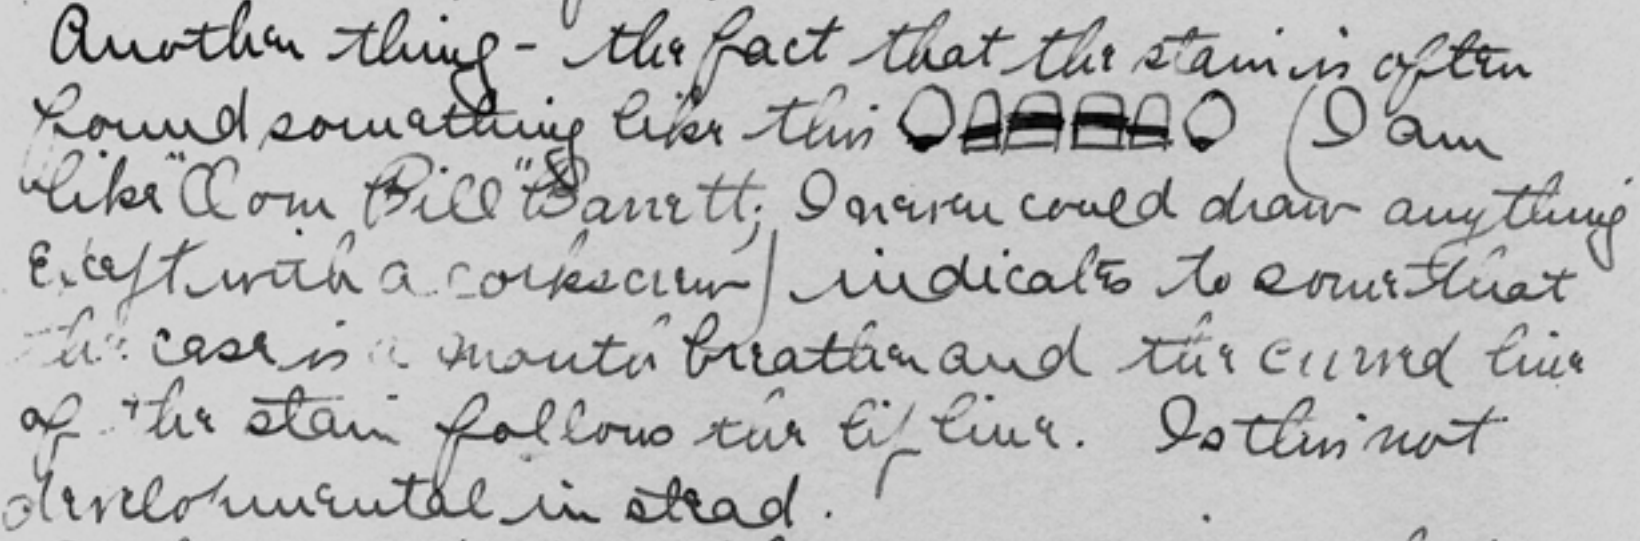 Another thing - the fact that the stain is often
found something like this (I am
like "Com Bill" Barrett; I never could draw anything
except with a corkscrew) indicates to some that
the case is a mouth breather and the curved line
of the stain follows the lip line. Is this not
developmental in stead.